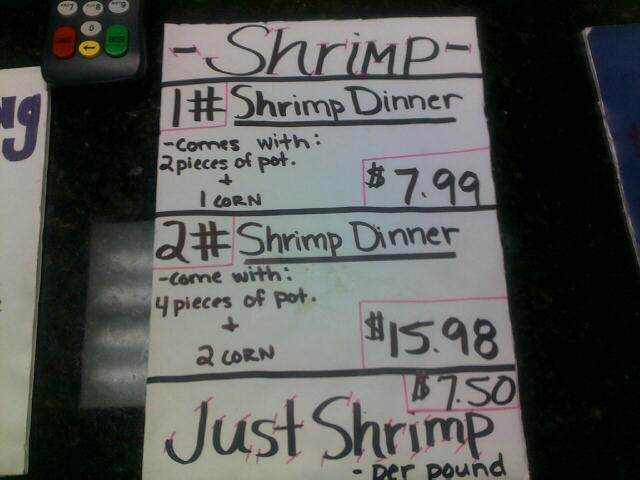 -Shrimp-
1# Shrimp Dinner
-comes with:
2 pieces of pot.
+
1 CORN
$7.99
2# Shrimp Dinner
-come with:
4 pieces of pot.
+
2 CORN
$15.98
$7.50
Just Shrimp
- per pound
ng